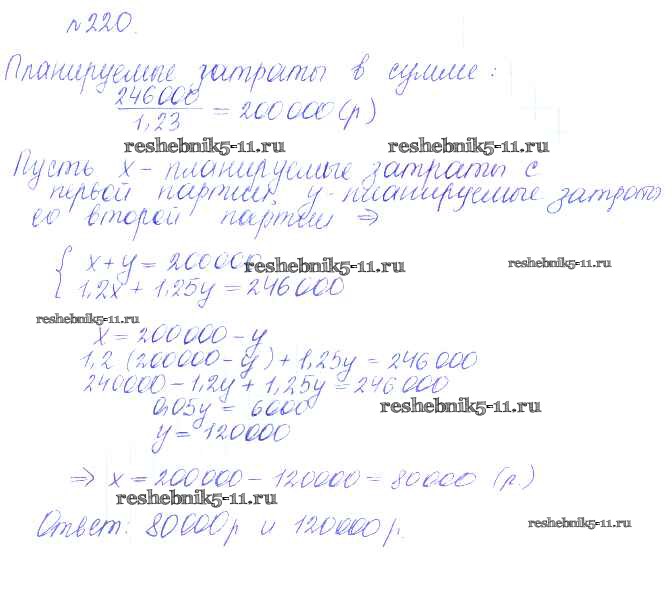 №220.
Планируемые затраты в сумме:
246000
1,23 = 200000 (р)
reshebnik5-11.ru reshebnik5-11.ru
Пусть x - планируемые затраты с
первой партии, y - планируемые затраты
со второй партии ⇒
{ x + y = 200000
reshebnik5-11.ru reshebnik5-11.ru
1,2x + 1,25y = 246000
reshebnik5-11.ru
x = 200000 - y
1,2 (200000 - y) + 1,25y = 246000
240000 - 1,2y + 1,25y = 246000
0,05y = 6000
reshebnik5-11.ru
y = 120000
⇒ x = 200000 - 120000 = 80000 (р.)
reshebnik5-11.ru
Ответ: 80000р и 120000р.
reshebnik5-11.ru